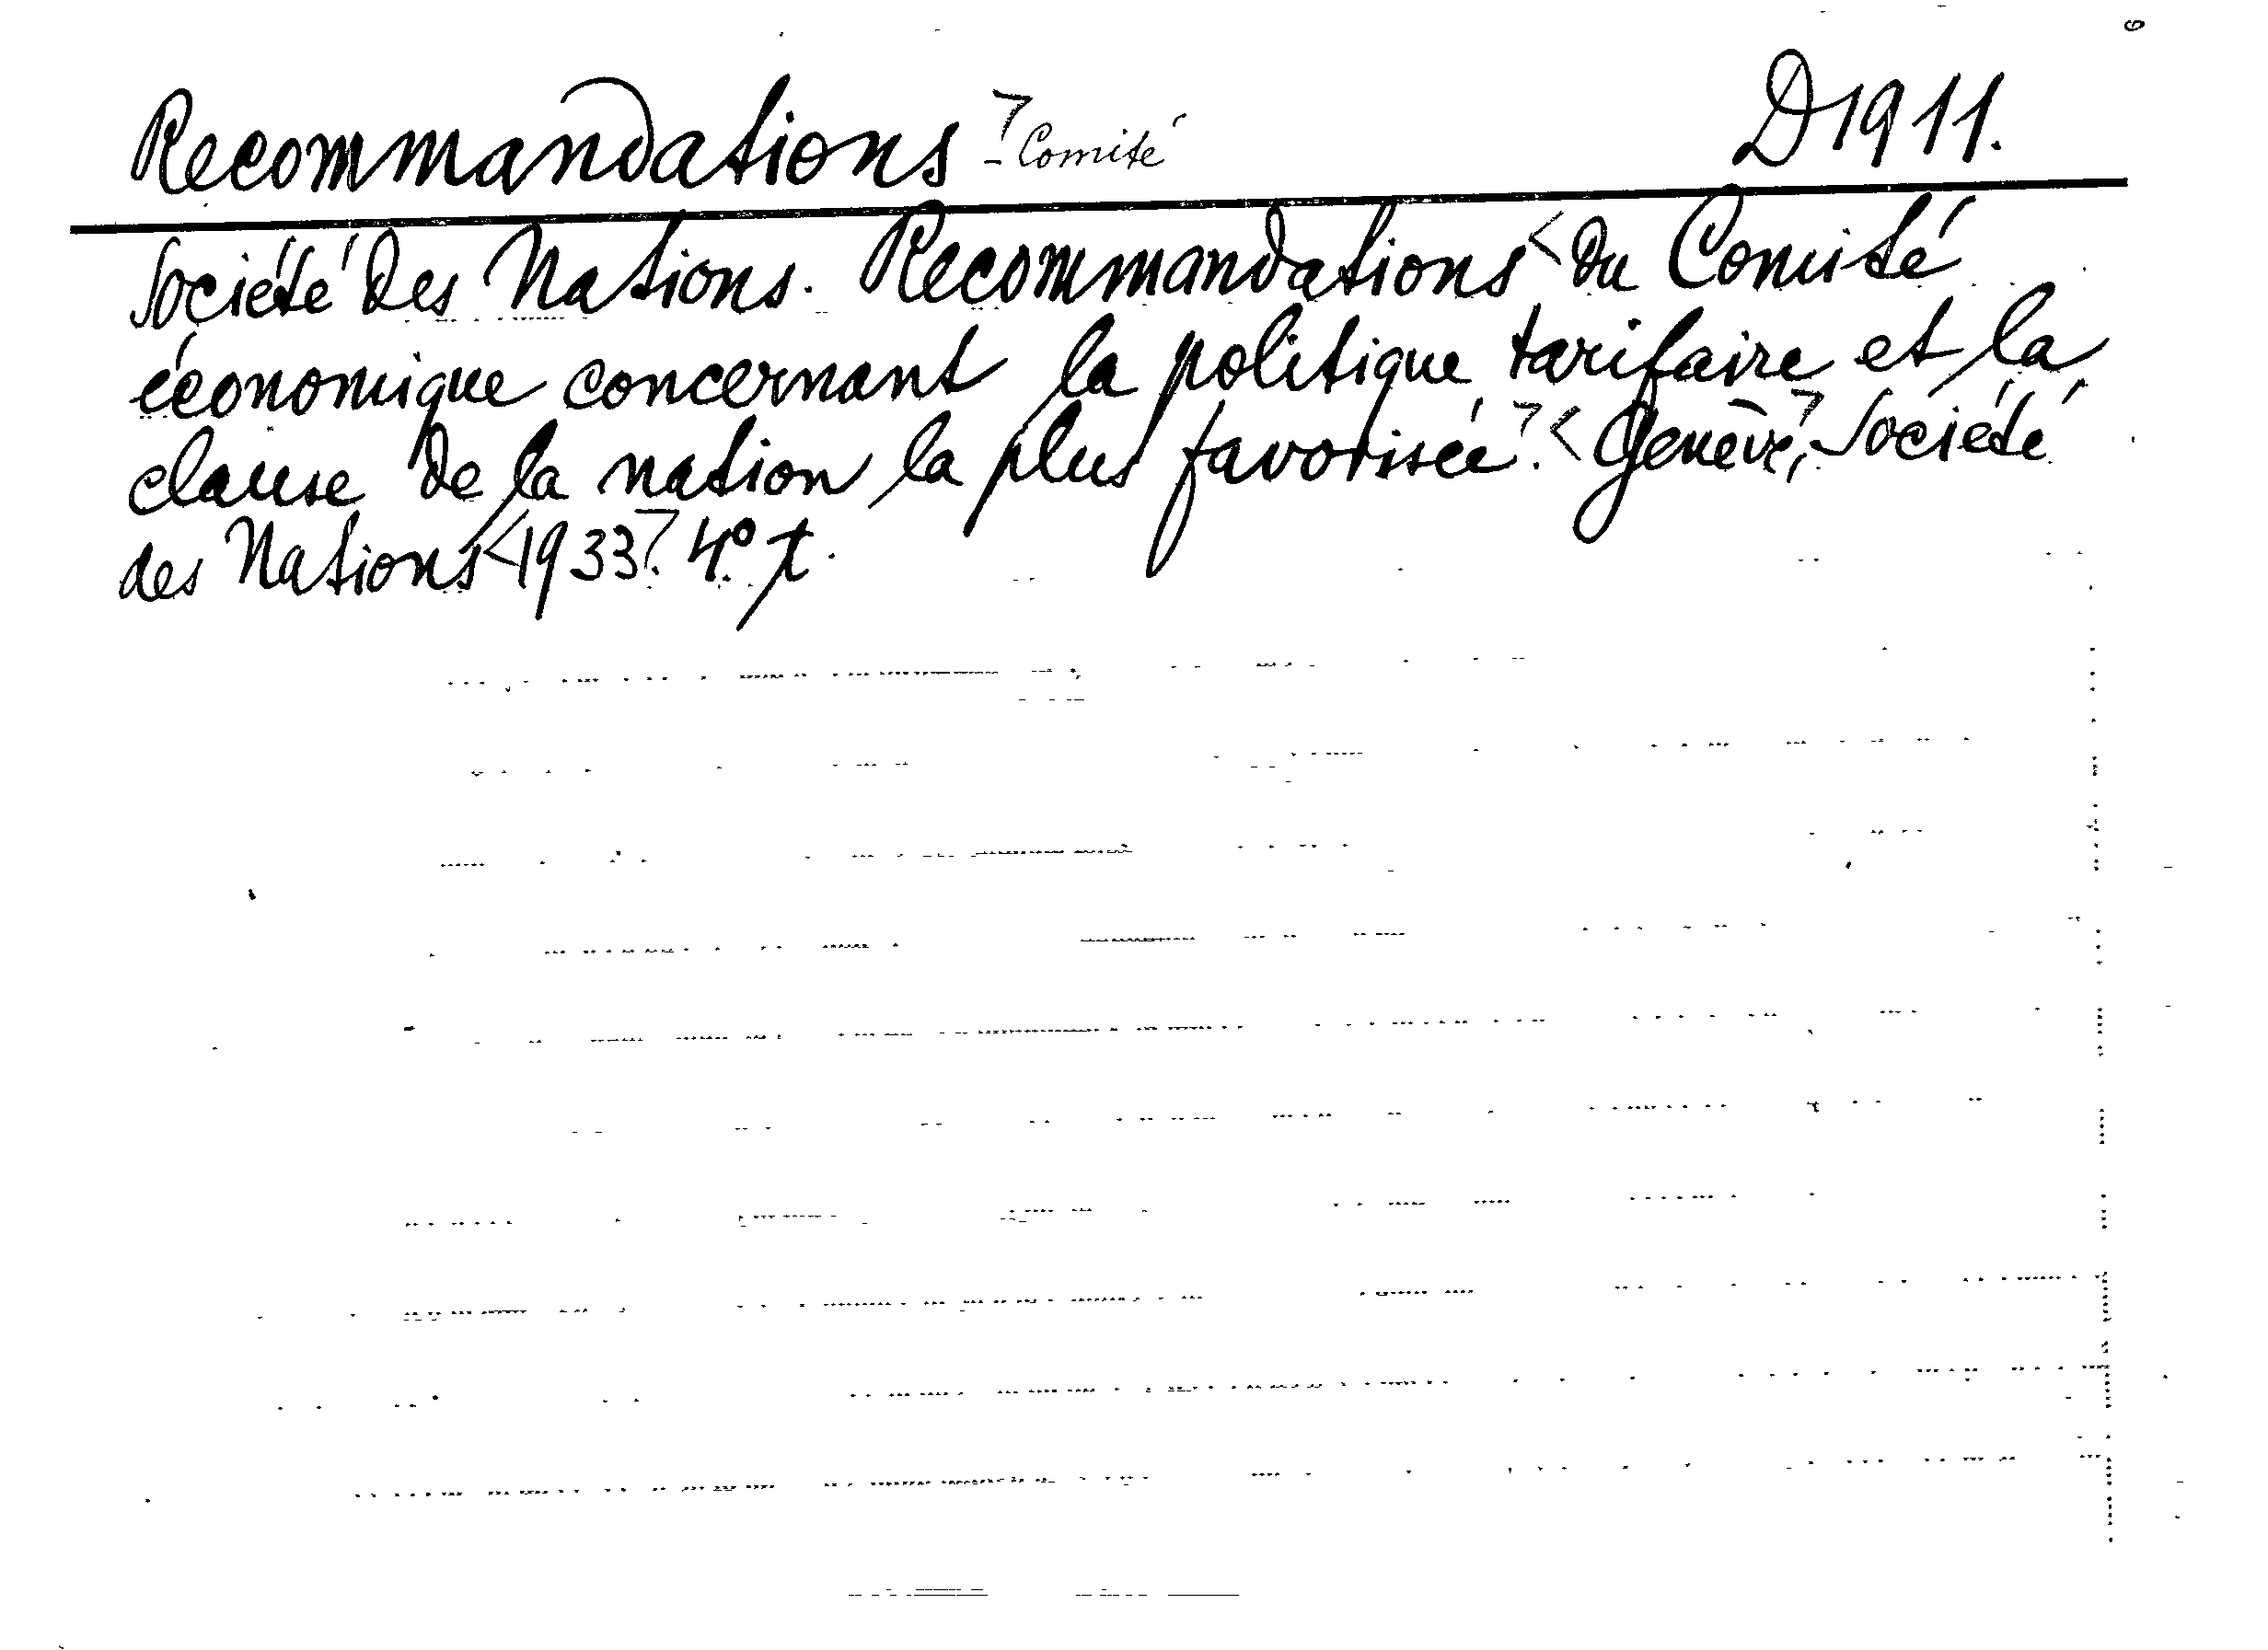 Recommandations - Comité D1911.
Société des Nations. Recommandations du Comité
économique concernant la politique tarifaire et la
clause de la nation la plus favorisée. Genève, Société
des Nations 1933. 4° p.